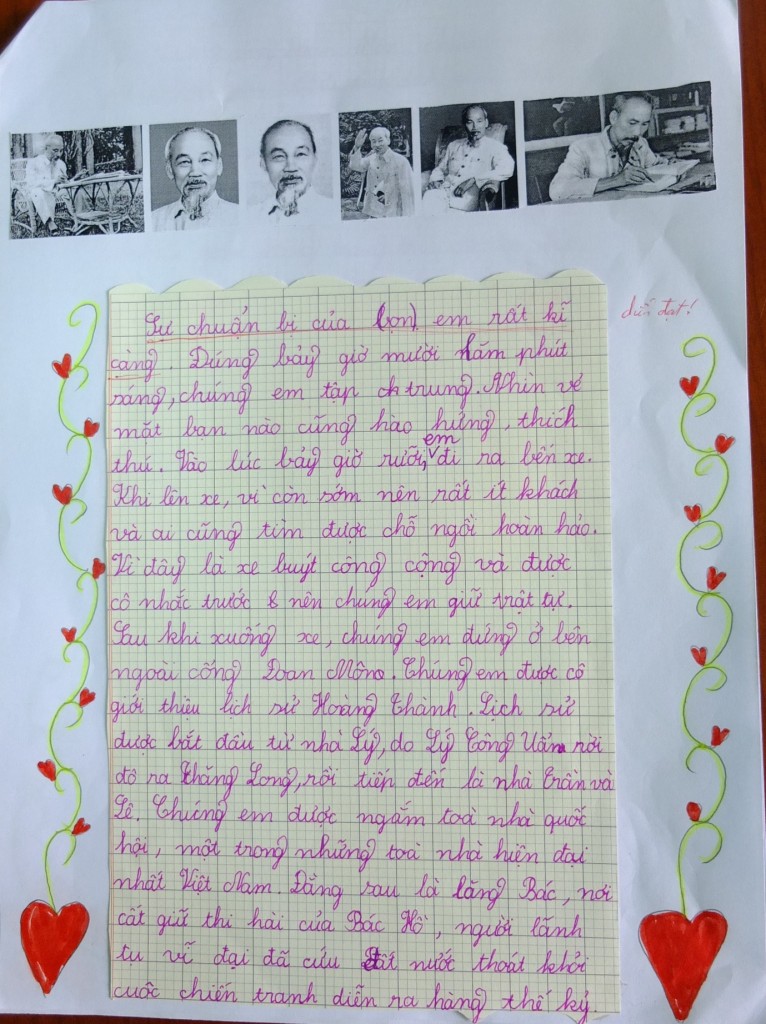 Sự chuẩn bị của (bọn) em rất kĩ
diễn đạt!
càng. Đúng bảy giờ mười lăm phút
sáng, chúng em tập trung. Nhìn vẻ
mặt bạn nào cũng hào hứng, thích
thú. Vào lúc bảy giờ rưỡi, em đi ra bến xe.
Khi lên xe, vì còn sớm nên rất ít khách
và ai cũng tìm được chỗ ngồi hoàn hảo.
Vì đây là xe buýt công cộng và được
cô nhắc trước nên chúng em giữ trật tự.
Sau khi xuống xe, chúng em đứng ở bên
ngoài cổng Đoan Môn. Chúng em được cô
giới thiệu lịch sử Hoàng Thành. Lịch sử
được bắt đầu từ nhà Lý, do Lý Công Uẩn rời
đô ra Thăng Long, rồi tiếp đến là nhà Trần và
Lê. Chúng em được ngắm toà nhà quốc
hội, một trong những toà nhà hiện đại
nhất Việt Nam. Đằng sau là lăng Bác, nơi
cất giữ thi hài của Bác Hồ, người lãnh
tụ vĩ đại đã cứu đất nước thoát khỏi
cuộc chiến tranh diễn ra hàng thế kỷ.